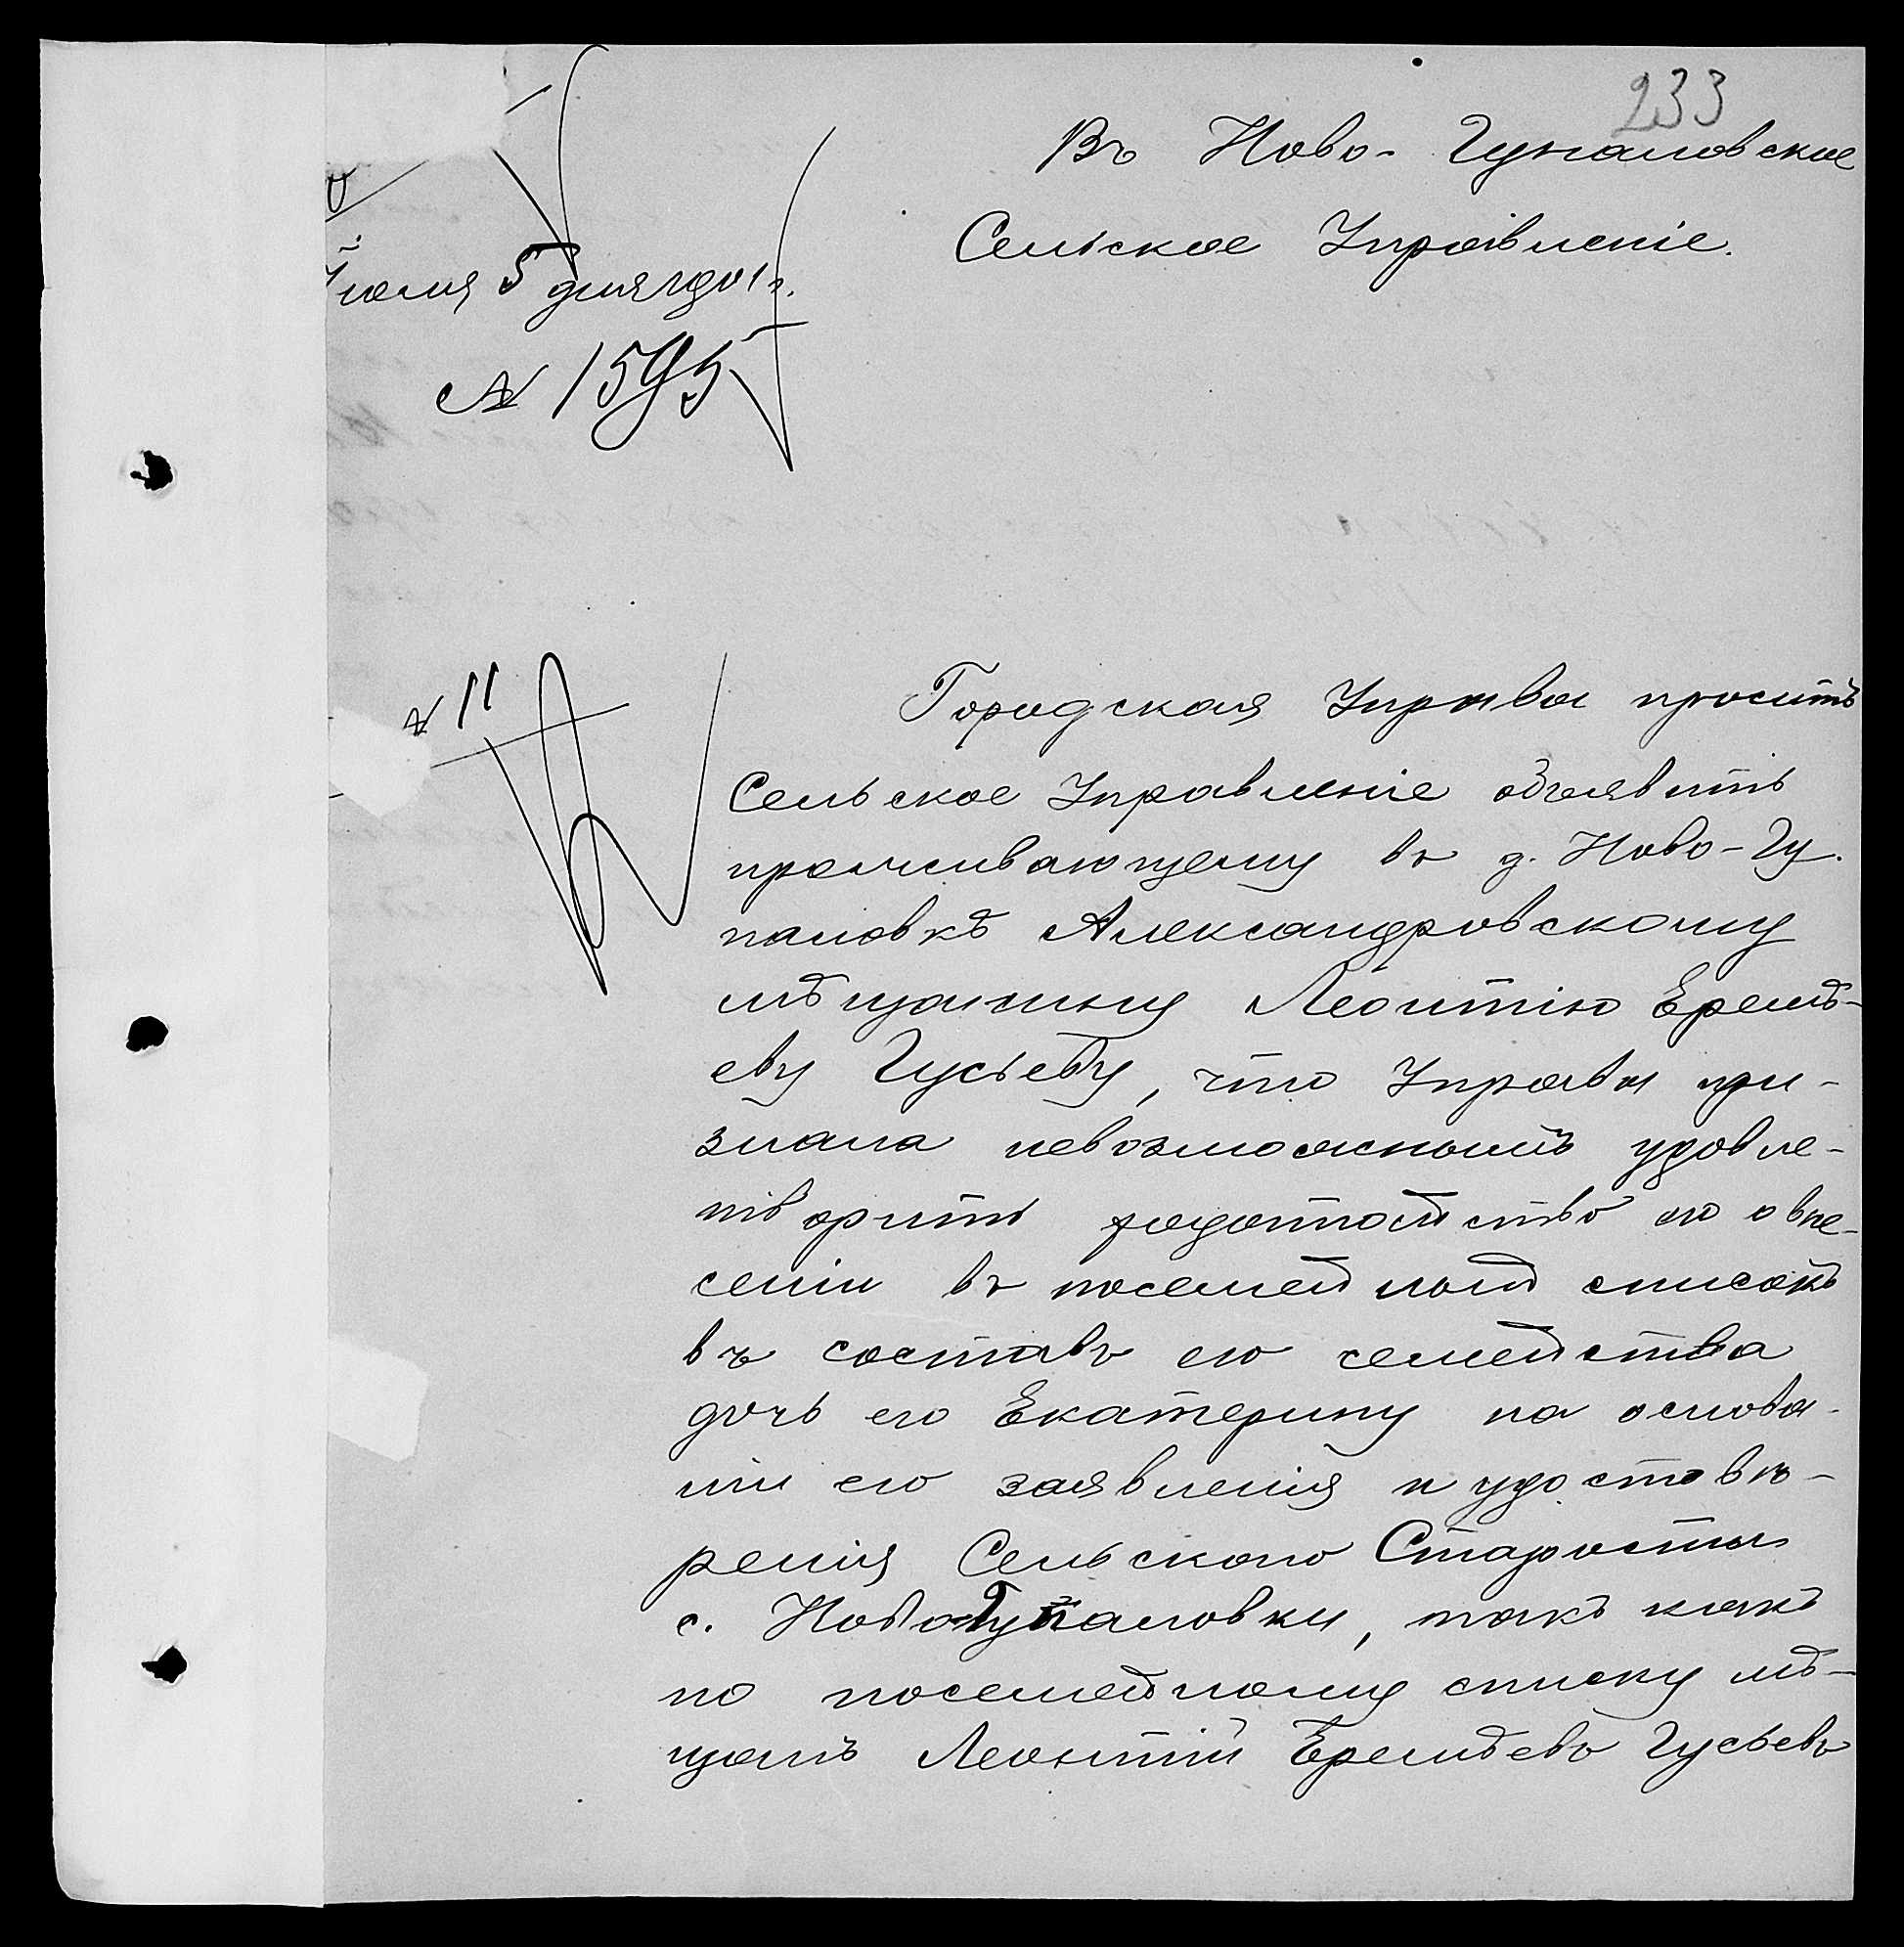 233
Въ Ново-Гупаловское
Сельское Управленіе.
Іюля 5 дня 1901 г.
№ 1595
№ 11
Городская Управа проситъ
Сельское Управленіе объявить
проживающему въ д. Ново-Гу-
паловкѣ Александровскому
мѣщанину Леонтію Еремѣ-
еву Гусьеву, что Управа при-
знала невозможнымъ удовле-
творить ходотайство его о вне-
сеніи въ посемейный списокъ
въ составъ его семейства
дочь его Екатерину на основа-
ніи его заявленія и удостовѣ-
ренія Сельскаго Старосты
с. Ново-Гупаловки, такъ какъ
по посемейному списку мѣ-
щанъ Леонтій Еремѣевъ Гусьевъ